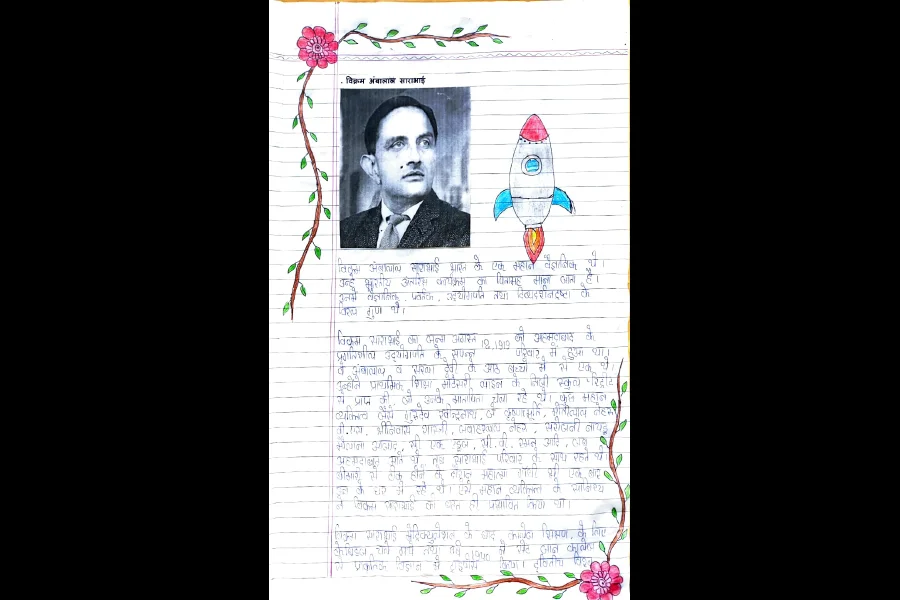 . विक्रम अंबालाल साराभाई
विक्रम अंबालाल साराभाई भारत के एक महान वैज्ञानिक थे।
इन्हे भारतीय अंतरिक्ष कार्यक्रम का पितामह माना जाता है।
इनमे वैज्ञानिक, प्रर्वतक, उद्योगपति तथा के
विरल गुण थे।
विक्रम साराभाई का जन्म अगस्त 12,1919 को अहमदाबाद के
प्रगतिशील उद्योगपति के संपन्न परिवार में हुआ था।
वे अंबालाल व सरला देवी के आठ बच्चों में से एक थे।
इन्होंने प्राथमिक शिक्षा के निजी स्कूल
से प्राप्त की जो उनके माता-पिता चला रहे थे। कुछ महान
व्यक्तित्व जैसे गुरुदेव रवीन्द्रनाथ, जे कृष्णमूर्ति, मोतीलाल नेहरू,
वी.एस. श्रीनिवास शास्त्री जवाहरलाल नेहरू, सरोजनी नायडू
मौलाना आजाद, सी एफ एंड्रूज, सी.वी. रमन आदि, जब
अहमदाबाद आते थे, तब साराभाई परिवार के साथ रहते थे।
बीमारी से ठीक होने के दौरान महात्मा गाँधी भी एक बार
उन के घर में रहे थे। ऐसे महान व्यक्तित्व के सानिध्य
ने विक्रम साराभाई को बहुत ही प्रभावित किया था।
विक्रम साराभाई मैट्रिकुलेशन के बाद, कालेज शिक्षण के लिए
केम्ब्रिज चले गये तथा वर्ष 1940 में सेंट जान कालेज
से प्राकृतिक विज्ञान में ट्राइपोस किया। द्वितीय विश्व